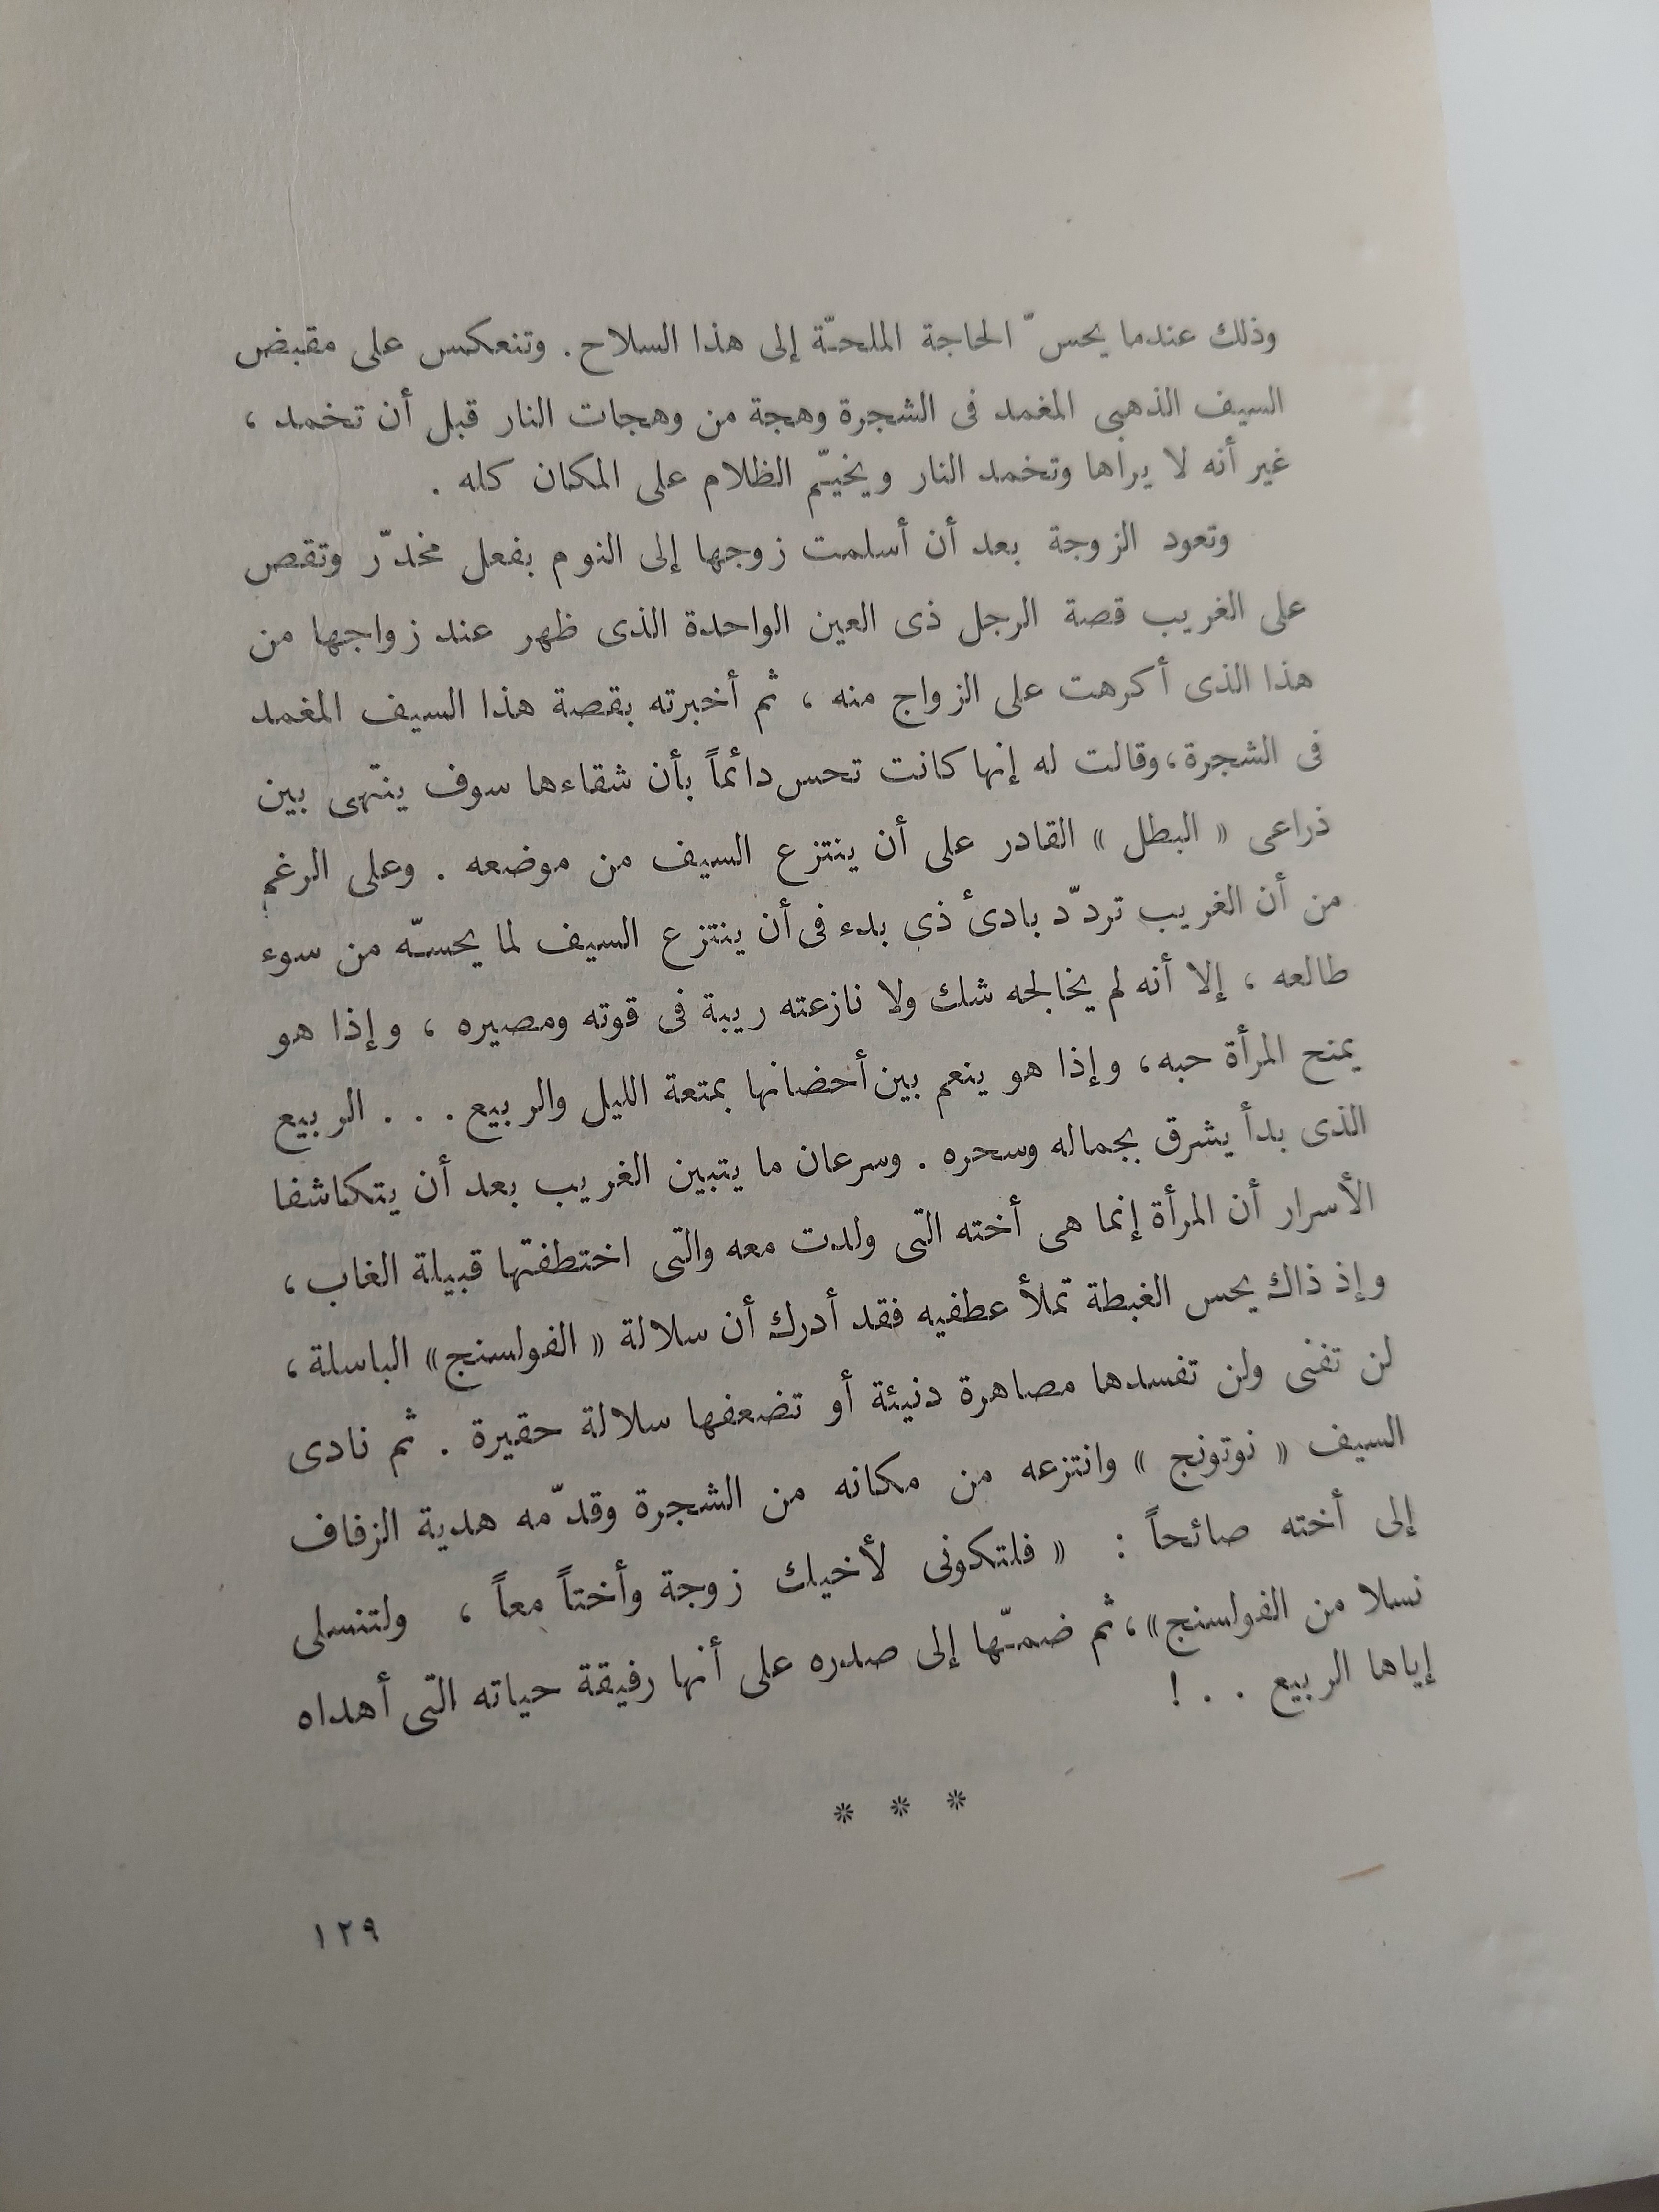 وذلك عندما يحسّ الحاجة الملحّة إلى هذا السلاح. وتنعكس على مقبض
السيف الذهبى المغمد فى الشجرة وهجة من وهجات النار قبل أن تخمد ،
غير أنه لا يراها وتخمد النار ويخيّم الظلام على المكان كله .
وتعود الزوجة بعد أن أسلمت زوجها إلى النوم بفعل مخدّر وتقص
على الغريب قصة الرجل ذى العين الواحدة الذى ظهر عند زواجها من
هذا الذى أكرهت على الزواج منه ، ثم أخبرته بقصة هذا السيف المغمد
فى الشجرة، وقالت له إنها كانت تحس دائماً بأن شقاءها سوف ينتهى بين
ذراعى « البطل » القادر على أن ينتزع السيف من موضعه . وعلى الرغم
من أن الغريب تردّد بادئ ذى بدء فى أن ينتزع السيف لما يحسّه من سوء
طالعه ، إلا أنه لم يخالجه شك ولا نازعته ريبة فى قوته ومصيره ، وإذا هو
يمنح المرأة حبه، وإذا هو ينعم بين أحضانها بمتعة الليل والربيع . . . الربيع
الذى بدأ يشرق بجماله وسحره . وسرعان ما يتبين الغريب بعد أن يتكاشفا
الأسرار أن المرأة إنما هى أخته التى ولدت معه والتى اختطفتها قبيلة الغاب ،
وإذ ذاك يحس الغبطة تملأ عطفيه فقد أدرك أن سلالة « الفولسنج » الباسلة ،
لن تفنى ولن تفسدها مصاهرة دنيئة أو تضعفها سلالة حقيرة . ثم نادى
السيف « نوتونج » وانتزعه من مكانه من الشجرة وقدّمه هدية الزفاف
إلى أخته صائحاً : « فلتكونى لأخيك زوجة وأختاً معاً ، ولتنسلى
نسلا من الفولسنج»، ثم ضمّها إلى صدره على أنها رفيقة حياته التى أهداه
إياها الربيع . . !
* * *
١٢٩